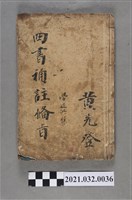 黃允登
四書補註備旨
2021.032.0036